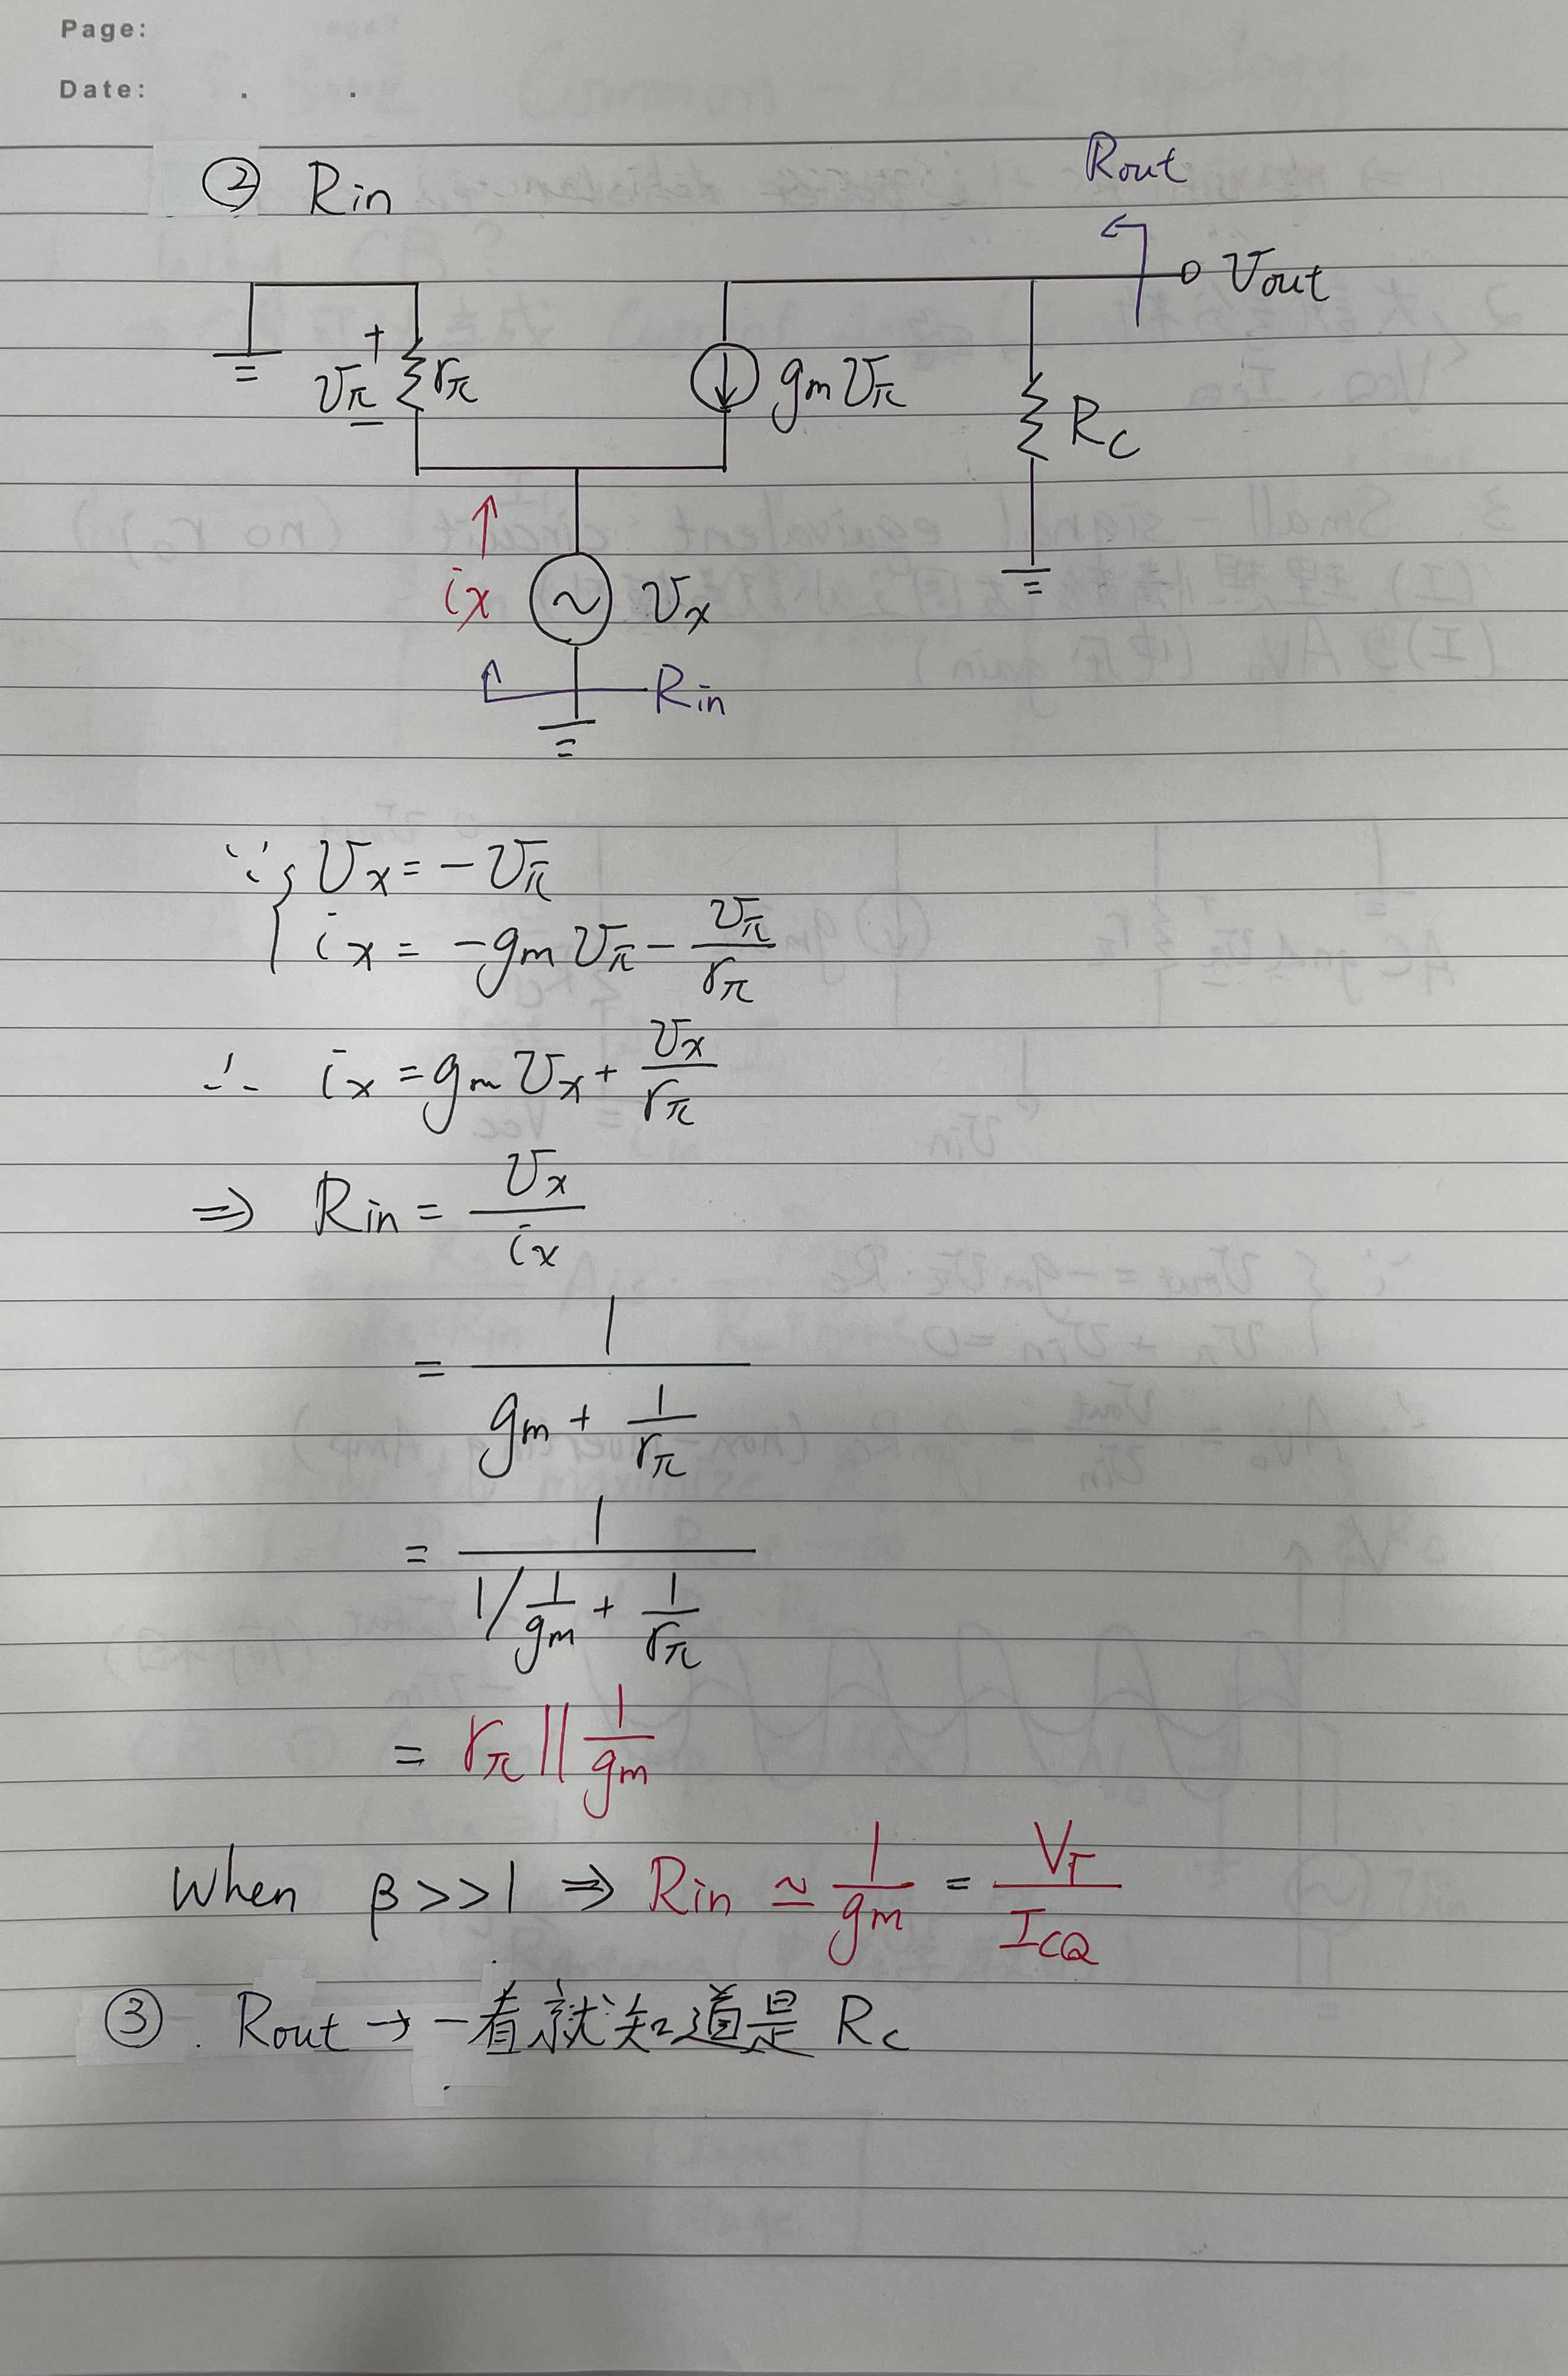 Page:
Date: . .
② Rin
Rout
Vout
+
Vπ rπ
−
gm Vπ
RC
ix
Vx
Rin
∵ { Vx = - Vπ
ix = - gm Vπ - Vπ/rπ
∴ ix = gm Vx + Vx/rπ
⇒ Rin = Vx/ix
= 1/(gm + 1/rπ)
= 1/(1/(1/gm) + 1/rπ)
= rπ || 1/gm
When β >> 1 ⇒ Rin ≃ 1/gm = VT/ICQ
③. Rout → 一看就知道是 Rc